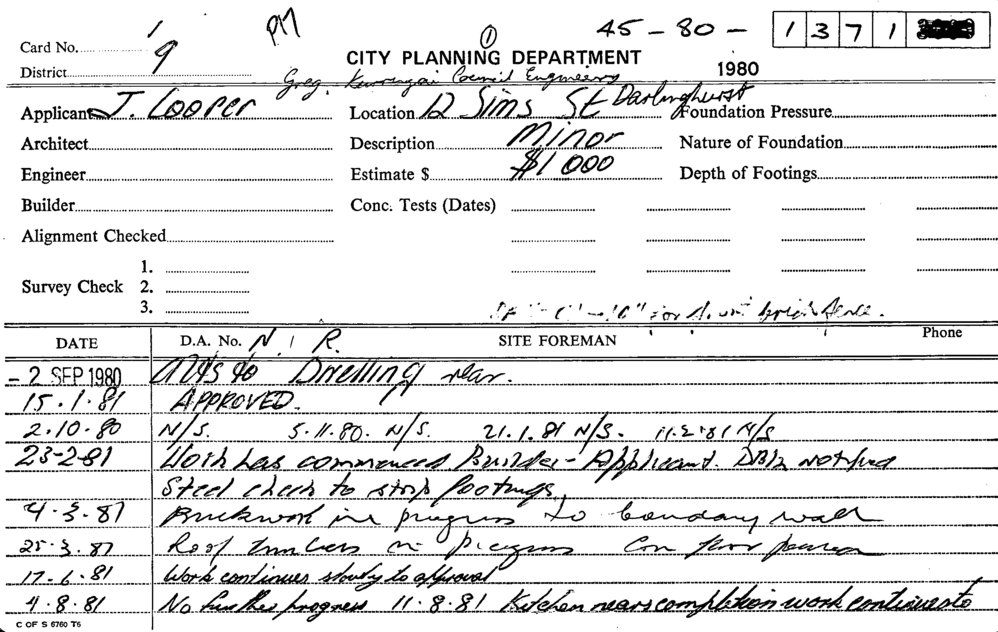 1 PM 1 45-80- 1371
Card No.
9 CITY PLANNING DEPARTMENT
District 1980
Greg. Council Engineers
Applicant J. Cooper Location 12 Sims St Darlinghurst Foundation Pressure
Architect Description Minor Nature of Foundation
Engineer Estimate $ $1000 Depth of Footings
Builder Conc. Tests (Dates)
Alignment Checked
1.
Survey Check 2.
3.
for brick
DATE D.A. No. N/R. SITE FOREMAN Phone
-2 SEP 1980 to Dwelling rear.
15.1.81 APPROVED.
2.10.80 N/S. 5.11.80. N/S. 21.1.81 N/S. 11.2.81 N/S
23-2-81 Work has commenced Builder - Applicant. notified
Steel check to strip footings,
4.3.81 Brickwork in progress to boundary wall
25.3.81 Roof timbers in progress floor
17.6.81 Work continues slowly to approval
4.8.81 No further progress 11.8.81 Kitchen nears completion work continues to
C OF S 6760 T5